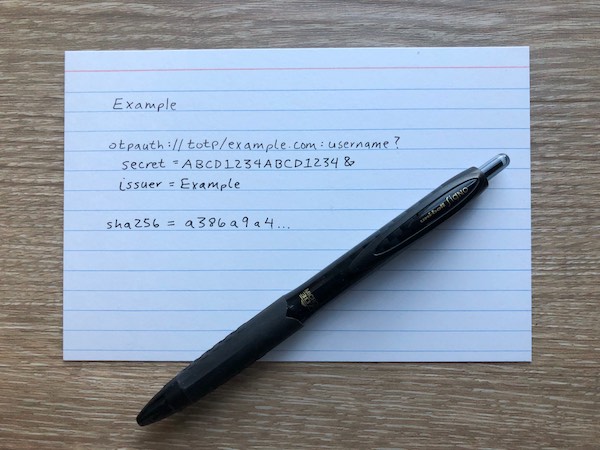 Example
otpauth://totp/example.com:username?
secret=ABCD1234ABCD1234&
issuer=Example
sha256 = a386a9a4...